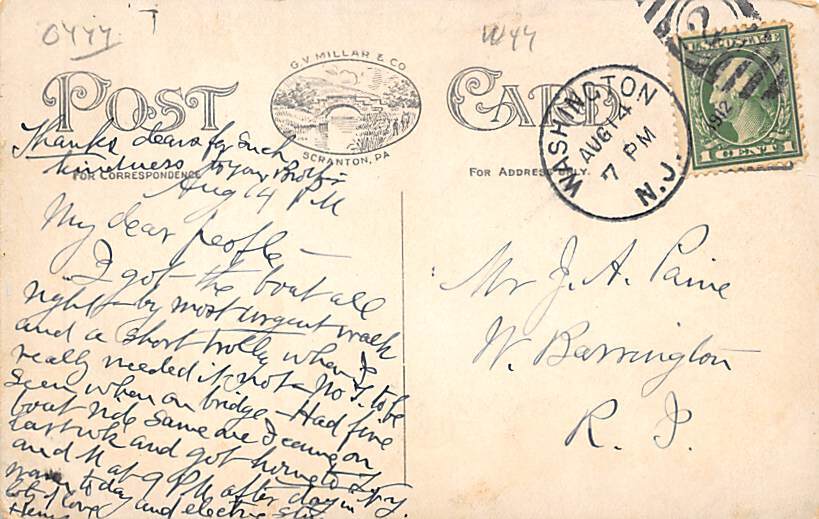 0444 T
W44
POST CARD
G.V. MILLAR & CO
SCRANTON, PA
FOR CORRESPONDENCE
FOR ADDRESS ONLY.
WASHINGTON
AUG 14
7 PM
N.J.
2
1912
U.S. POSTAGE
1 CENT 1
Thanks dears for such
kindness to your Bro
Aug 14 PM
My dear people –
I got the boat all
right – by most urgent walk
and a short trolley when I
really needed it not – no T. to be
seen when on bridge – Had fine
boat ride same one I came on
last wk and got home to
and at 9 PM after day in
to day and electric
lots of love
Henry
Mr J. A. Paine
W. Barrington
R. I.